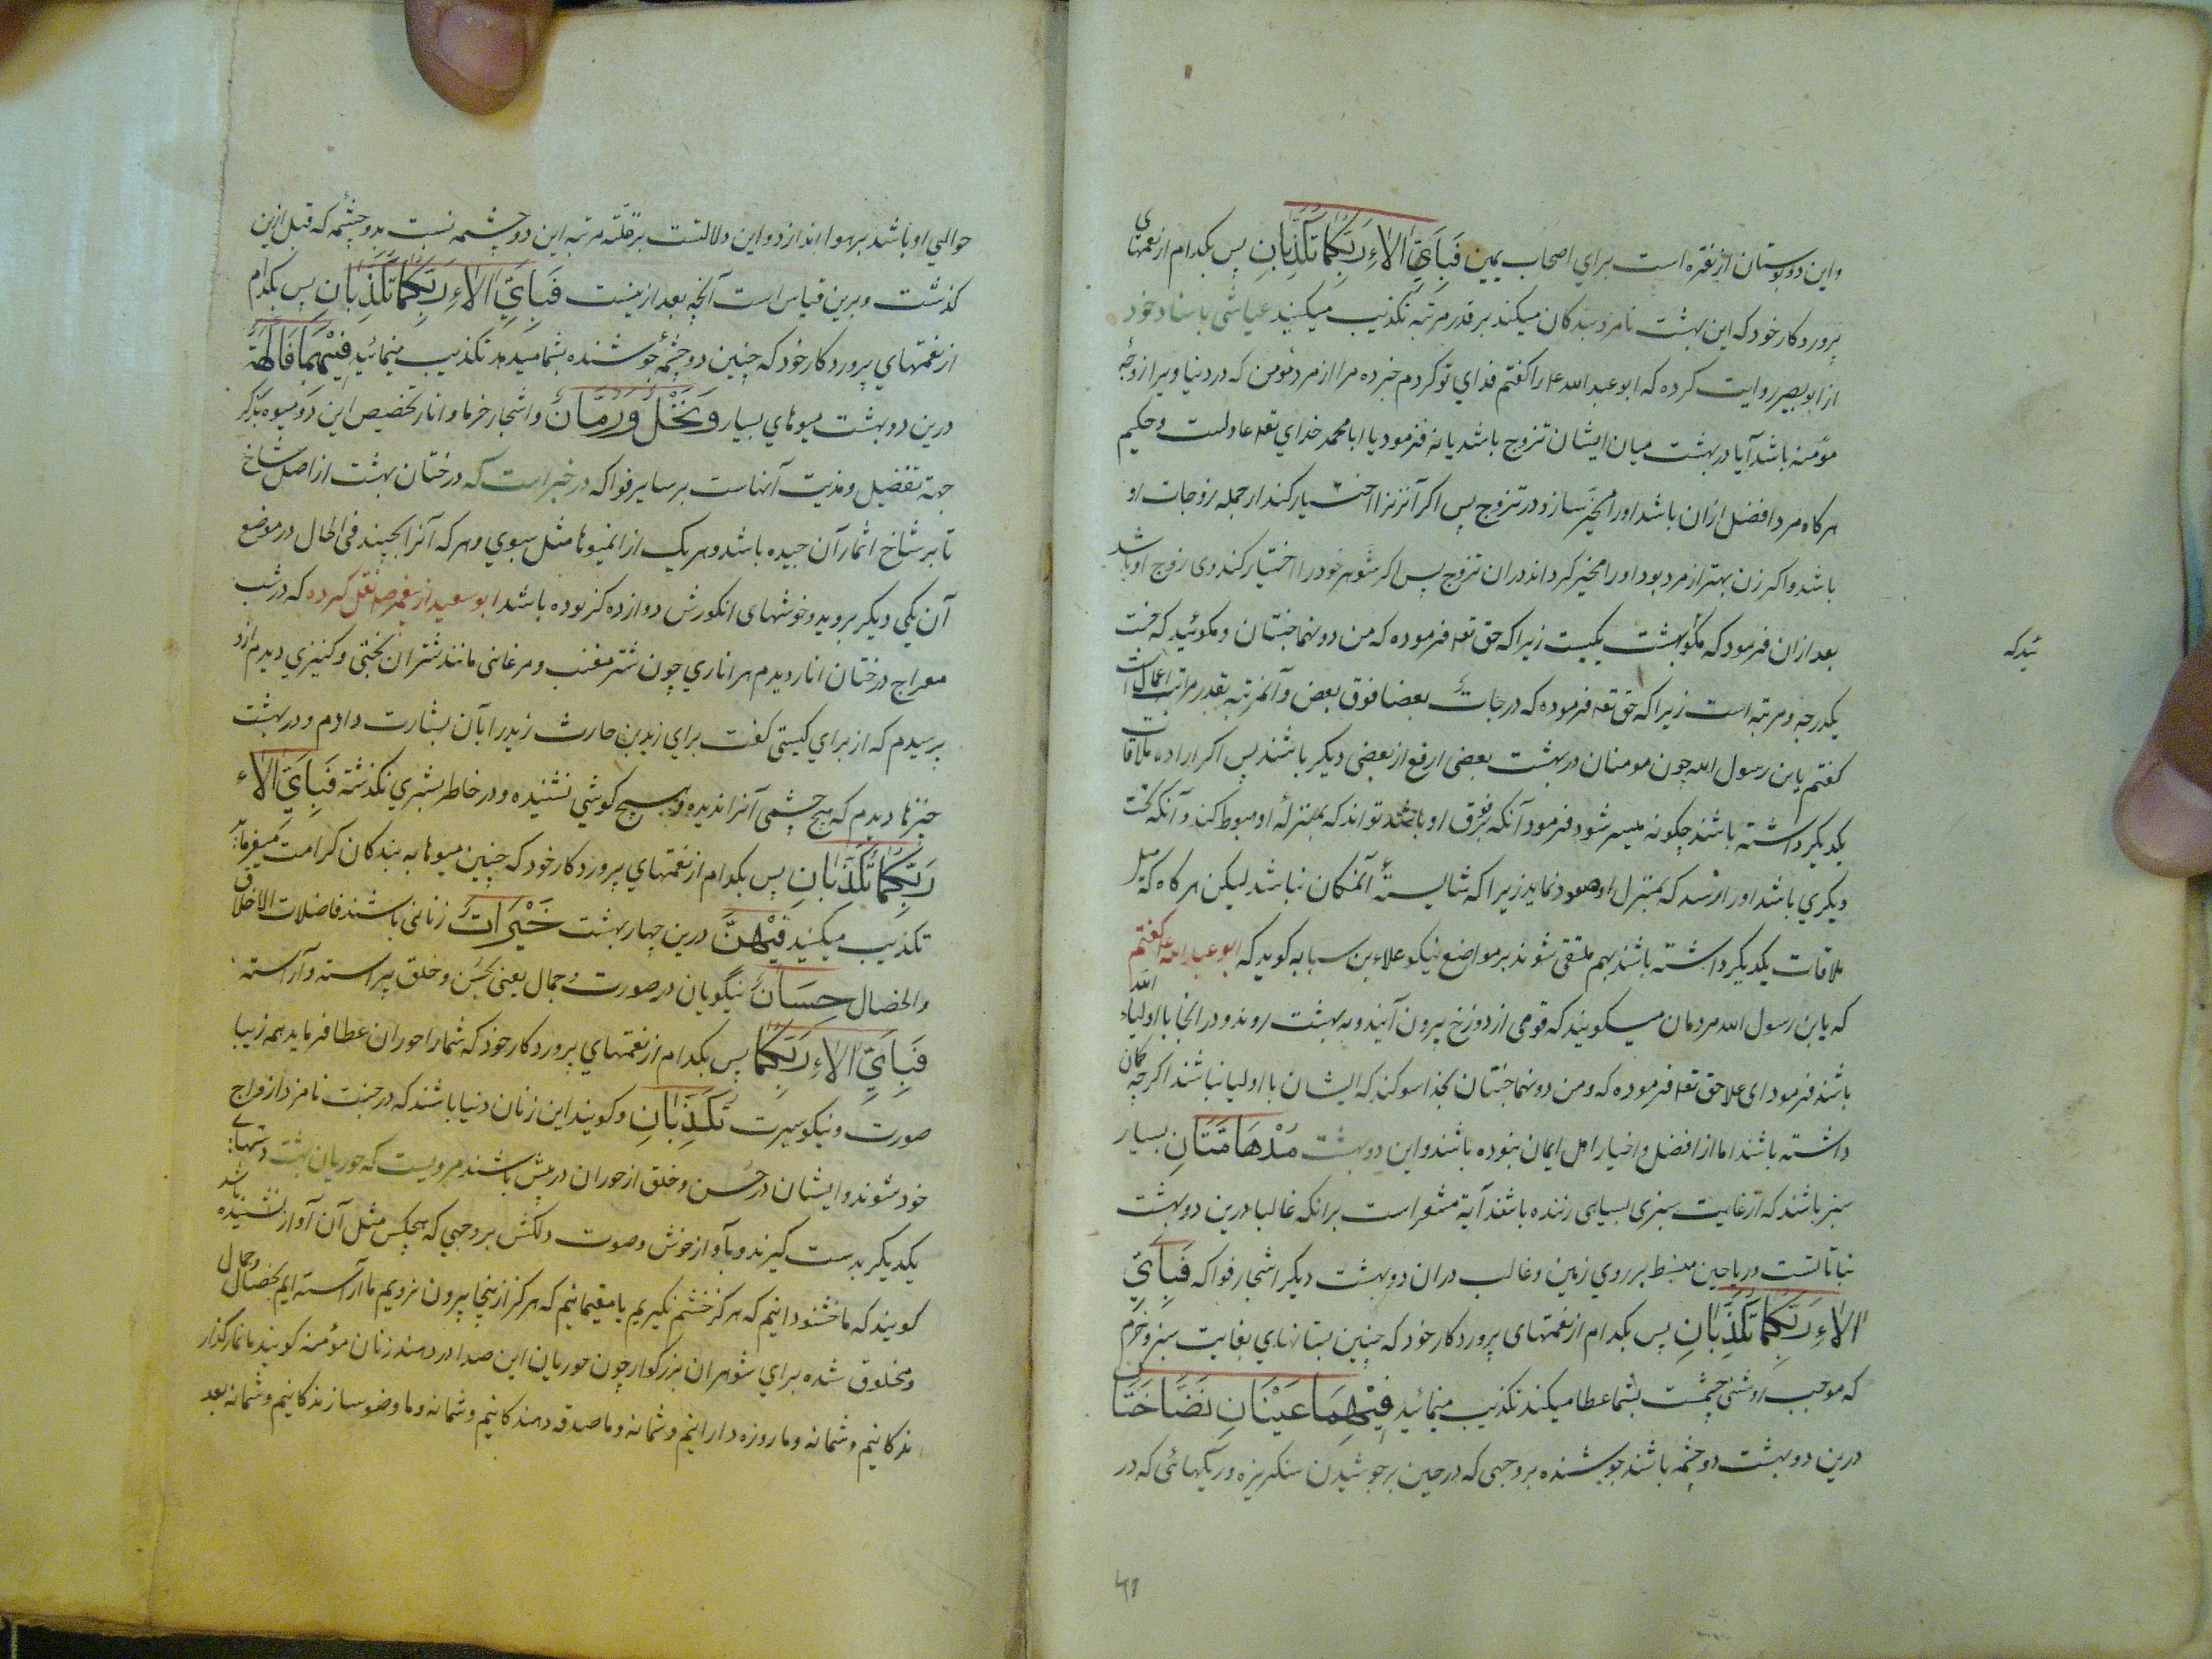 واین دو بوستان از نقره است برای اصحاب یمین فَبِاَيِّ اٰلاٰءِ رَبِّكُمٰا تُكَذِّبٰانِ پس بکدام از نعمتهای
پروردکار خود که این بهشت نامزد بندکان میکند بر قدر مرتبه تکذیب میکنید عیاشی باسناد خود
از ابو بصیر روایت کرده که ابو عبد الله ع را کفتم فدای تو کردم خبر ده مرا از مرد مؤمن که در دنیا ویرا زوجهٔ
مؤمنه باشد آیا در بهشت میان ایشان تزوج باشد یا نه فرمود یا ابا محمد خدای تعه عادلست و حکیم
هرکاه مرد افضل ازان باشد اورا مخیر سازد در تزوج پس اکر آنزنرا اختیار کند از جمله زوجات او
باشد و اکر زن بهتر از مرد بود اورا مخیر کرداند دران تزوج پس اکر شوهر خود را اختیار کند وی زوج او باشد
بعد ازان فرمود که مکو بهشت یکیست زیرا که حق تعه فرموده که من دونهما جنتان و مکوئید که جنت
ئید که
یکدرجه و مرتبه است زیرا که حق تعه فرموده که درجات بعضا فوق بعض و آنمرتبه بقدر مراتب اعمال است
کفتم یابن رسول الله چون مومنان در بهشت بعضی ارفع از بعضی دیکر باشند پس اکر اراده ملاقات
یکدیکر داشته باشند چکونه میسر شود فرمود آنکه بفوق او باشد تواند که بمنزلهٔ او هبوط کند و آنکه تحت
دیکری باشد اورا نرسد که بمنزل او صعود نماید زیرا که شایستهٔ آنمکان نباشد لیکن هرکاه که میل
ملاقات یکدیکر داشته باشند بهم ملتقی شوند بر مواضع نیکو علاء بن سبابه کوید که ابو عبد الله ع کفتم
که یابن رسول الله مردمان میکویند که قومی از دوزخ بیرون آیند و به بهشت روند و در انجا با اولیاء الله
باشند فرمود ای علا حق تعه فرموده که ومن دونهما جنتان بخدا سوکند که ایشان با اولیا نباشند اکرچه مکان
داشته باشند اما از افضل و اخیار اهل ایمان نبوده باشند و این دو بهشت مُدْهٰامَّتٰانِ بسیار
سبز باشند که از غایت سبزی بسیاهی زننده باشند آیه مشعر است برانکه غالبا درین دو بهشت
نباتاتست و ریاحین منبسط بر روی زمین و غالب دران دو بهشت دیکر اشجار و فواکه فَبِاَيِّ
اٰلاٰءِ رَبِّكُمٰا تُكَذِّبٰانِ پس بکدام از نعمتهای پروردکار خود که چنین بستانهای بغایت سبز و خرم
که موجب روشنی چشمست بشما عطا میکند تکذیب مینمائید فِيْهِمٰا عَيْنٰانِ نَضّٰاخَتٰانِ
درین دو بهشت دو چشمه باشند جوشنده بر وجهی که در حین بر جوشیدن سنکریزه و ریکهائی که در
حوالی او باشد بر هوا اندازد و این دلالتست بر قلّه مرتبه این دو چشمه نسبت بدو چشمه که قبل ازین
کذشت و برین قیاس است آنچه بعد ازینست فَبِاَيِّ اٰلاٰءِ رَبِّكُمٰا تُكَذِّبٰانِ پس بکدام
از نعمتهای پروردکار خود که چنین دو چشمهٔ جوشنده بشما میدهد تکذیب مینمائید فِيْهِمٰا فٰاكِهَةٌ
درین دو بهشت میوهای بسیار وَنَخْلٌ وَرُمّٰانٌ و اشجار خرما و انار تخصیص این دو میوه بذکر
جهة تفضیل و مزیت آنهاست بر سایر فواکه در خبر است که درختان بهشت از اصل شاخ
تا بر شاخ اثمار آن چیده باشد و هر یک از انمیوها مثل سبوی و هرکه آنرا بچیند فی الحال در موضع
آن یکی دیکر بروید و خوشهای انکورش دوازده کز بوده باشد ابو سعید از پیغمبر ص نقل کرده که در شب
معراج درختان انار دیدم هر اناری چون شتر مقتب و مرغانی مانند شتران بختی و کنیزی دیدم ازو
پرسیدم که از برای کیستی کفت برای زید بن حارث زید را بآن بشارت دادم و در بهشت
چیزها دیدم که هیچ چشمی آنرا ندیده و هیچ کوشی نشنیده و در خاطر بشری نکذشته فَبِاَيِّ اٰلاٰءِ
رَبِّكُمٰا تُكَذِّبٰانِ پس بکدام از نعمتهای پروردکار خود که چنین میوها به بندکان کرامت میفرماید
تکذیب میکنید فِيْهِنَّ درین چهار بهشت خَيْرٰاتٌ زنانی باشند فاضلات الاخلاق
والخصال حِسٰانٌ نیکویان در صورت و جمال یعنی بحسن و خلق پیراسته و آراسته
فَبِاَيِّ اٰلاٰءِ رَبِّكُمٰا پس بکدام از نعمتهای پروردکار خود که شما را حوران عطا فرماید همه زیبا
صورت و نیکو سیرت تُكَذِّبٰانِ و کویند این زنان دنیا باشند که در جنت نامزد ازواج
خود شوند و ایشان در حسن و خلق از حوران در پیش باشند مرویست که حوریان بهشت دستهای
یکدیکر بدست کیرند و بآواز خوش و صوت دلکش بر وجهی که هیچکس مثل آن آواز نشنیده باشد
کویند که ما خشنودانیم که هرکز خشم نکیریم یا مقیمانیم که هرکز ازینجا بیرون نرویم ما آراسته ایم بخصال و جمال
و مخلوق شده برای شوهران بزرکوار چون حوریان این صدا در دهند زنان مؤمنه کویند ما نماز کذار
ندکانیم و شما نه و ما روزه دارانیم و شما نه و ما صدقه دهندکانیم و شما نه و ما وضو سازندکانیم و شما نه بعد